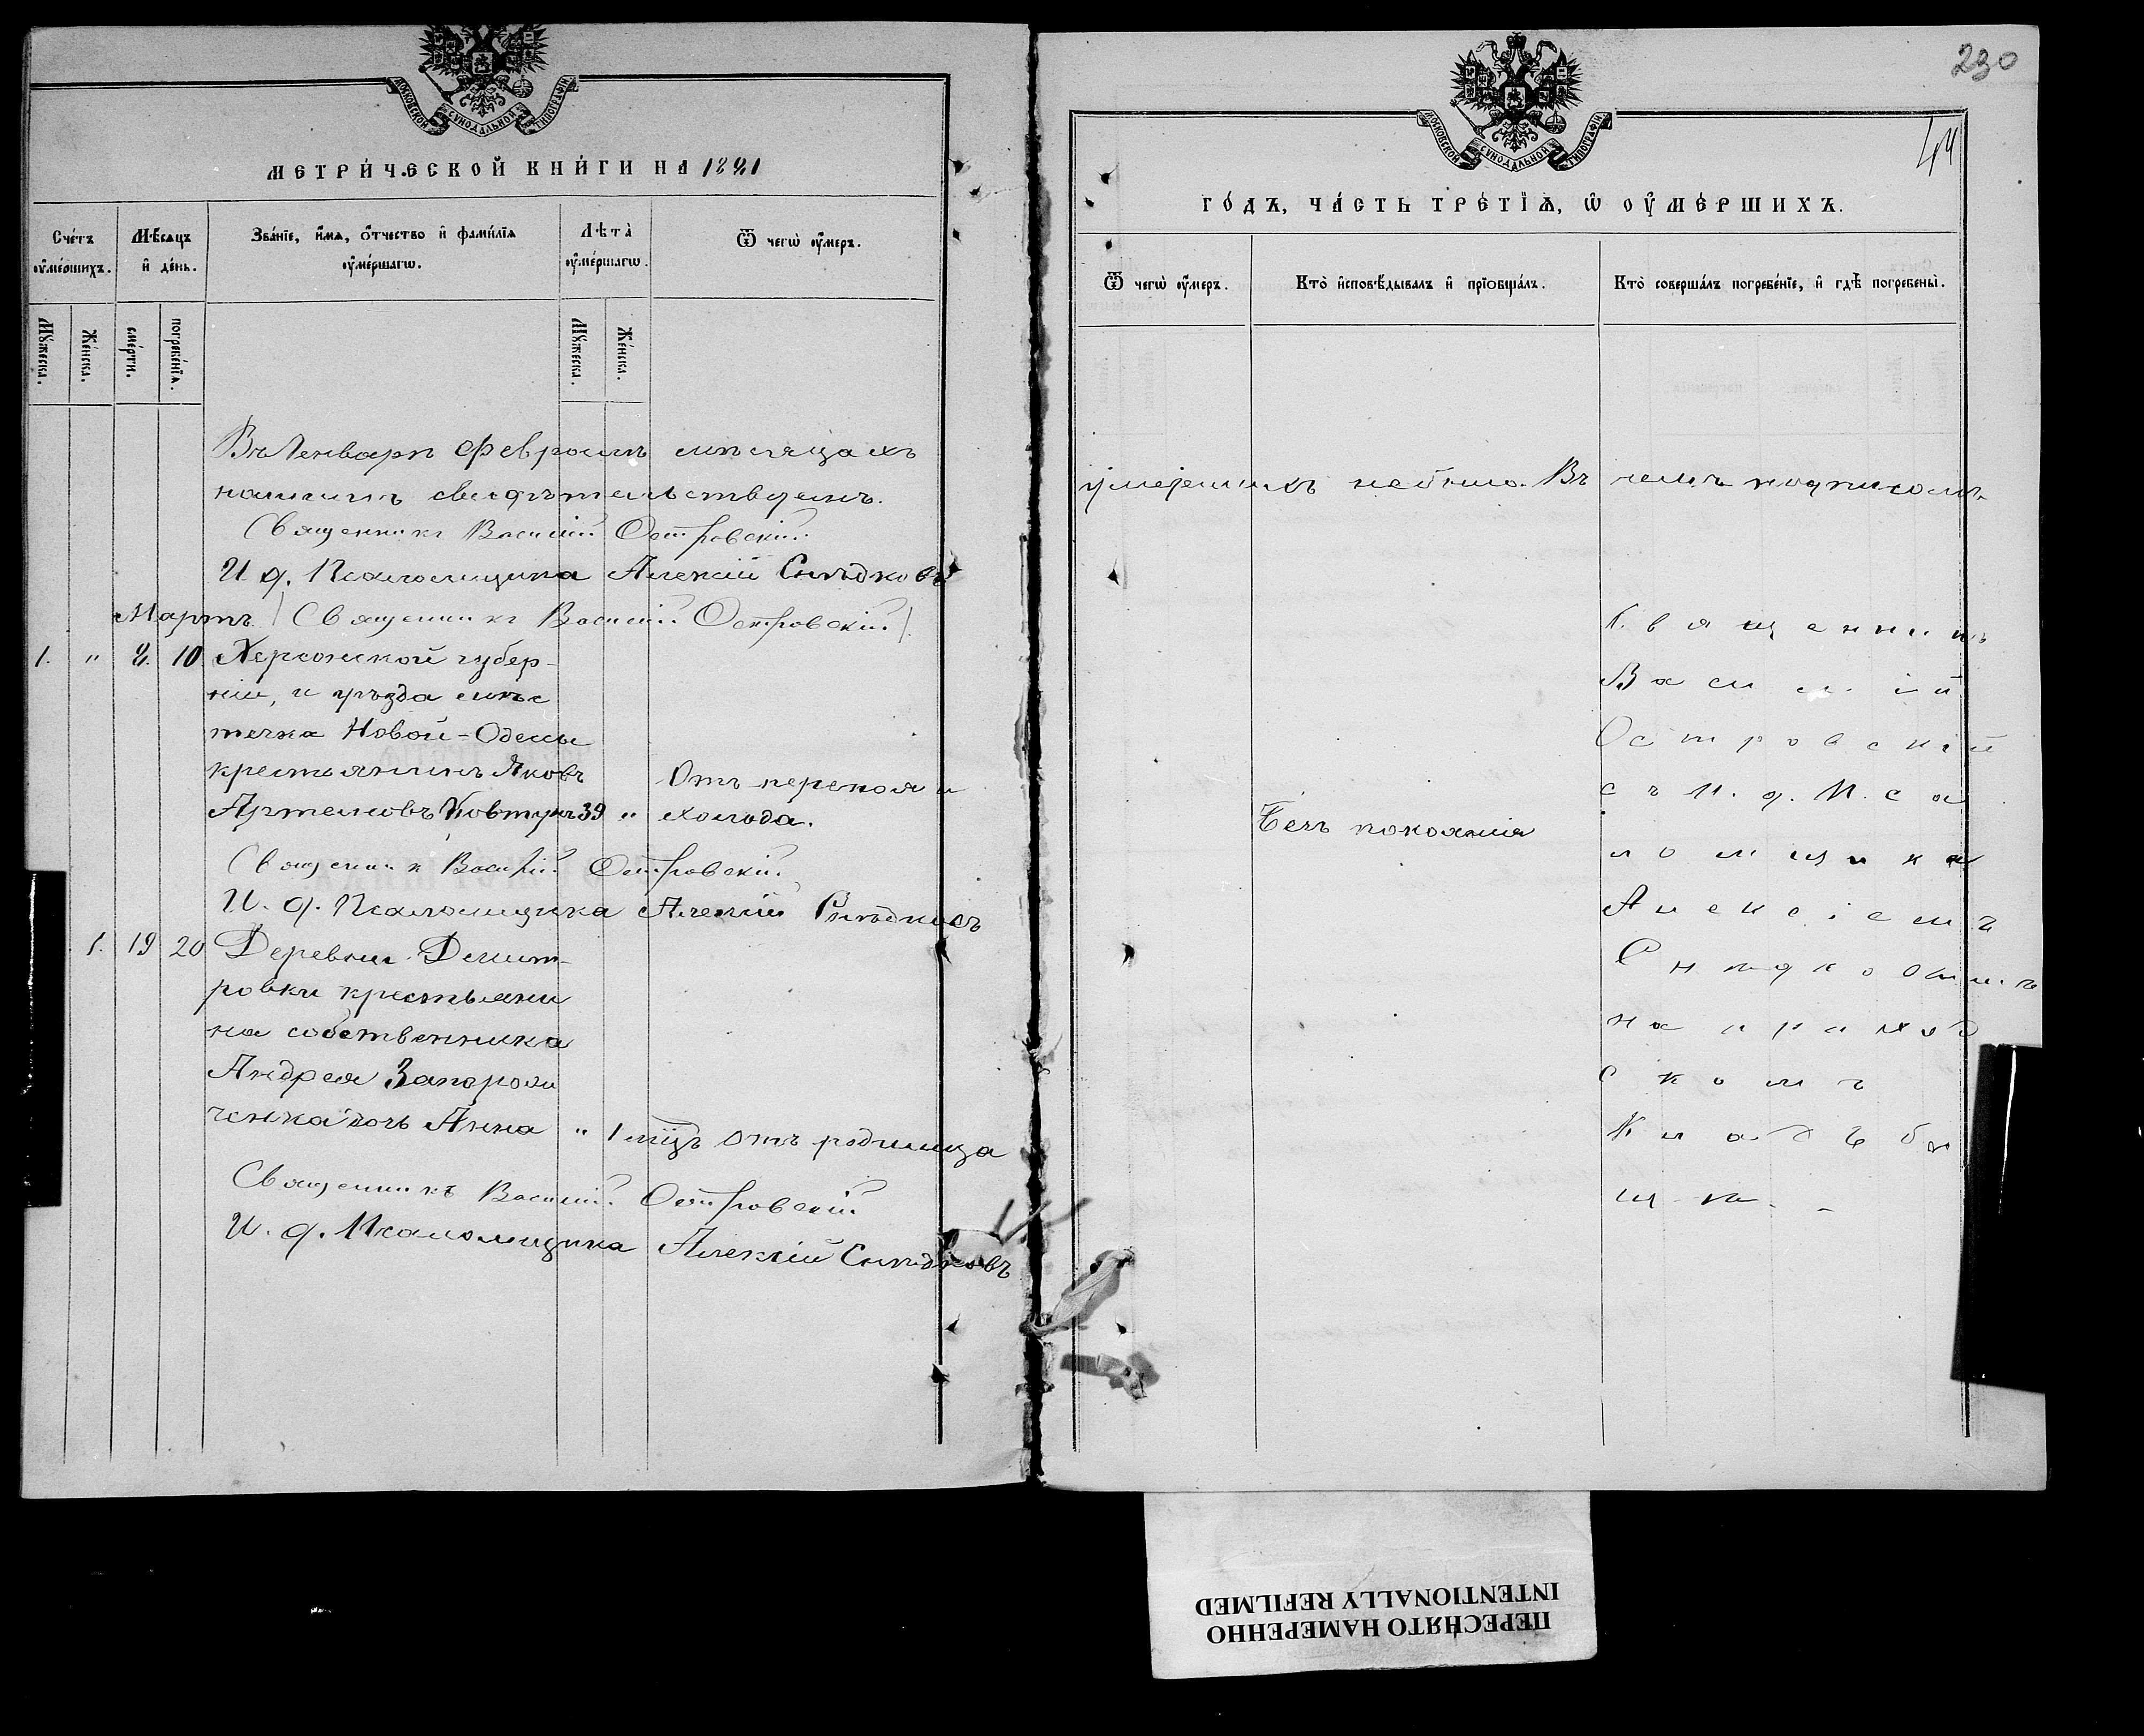 230
44
МОСКОВСКОЙ СѴНОДАЛЬНОЙ ТИПОГРАФІИ
МЕТРИ́ЧЕСКОЙ КНИ́ГИ НА 1881
Сче́тъ оумершихъ.
Мѣсяцъ и де́нь.
Зва́нїе, и́мѧ, о́тчество и фами́лїѧ оуме́ршагѡ.
Лѣта̀ оуме́ршагѡ.
Ѿ чегѡ̀ оу́меръ.
Мꙋжеска.
Же́нска.
сме́рти.
погребе́нїѧ.
Мꙋжеска.
Же́нска.
Въ Январѣ Февралѣ мѣсяцахъ
Священникъ Василій Островскій
И д. Псаломщика Алексій Снѣдковъ
Мартъ. (Священникъ Василій Островскій).
1. " 8. 10 Херсонской губер-
ніи, и уѣзда мѣс
течка Новой-Одессы
крестьянинъ Яковъ
Артемовъ Ковтунъ 39 "
Отъ перепоя и
холода.
Священникъ Василій Островскій
И. д. Псаломщика Алексій Снѣдковъ
1. 19 20 Деревни Дмит-
ровки крестьяни
на собственника
Андрея Запорож
ченка дочь Анна " 1 мцъ отъ родимца
Священникъ Василій Островскій
И. д. Псаломщика Алексій Снѣдковъ
МОСКОВСКОЙ СѴНОДАЛЬНОЙ ТИПОГРАФІИ
ГО́ДЪ, ЧА́СТЬ ТРЕ́ТЇѦ, Ѡ ОУМЕ́РШИХЪ.
Ѿ чегѡ̀ оу́меръ.
Кто̀ и҆сповѣ́дывалъ и҆ прїобща́лъ.
Кто̀ соверша́лъ погребе́нїе, и҆ гдѣ̀ погребены̀.
умершихъ небыло. Въ чемъ подписомъ
Безъ покоянія
Священникъ
Василій
Островскій
съ И. д. Пса
ломщика
Алексіемъ
Снѣдковымъ
на приход
скомъ
Кладъби
щѣ. -
ПЕРЕСНЯТО НАМЕРЕННО
INTENTIONALLY REFILMED